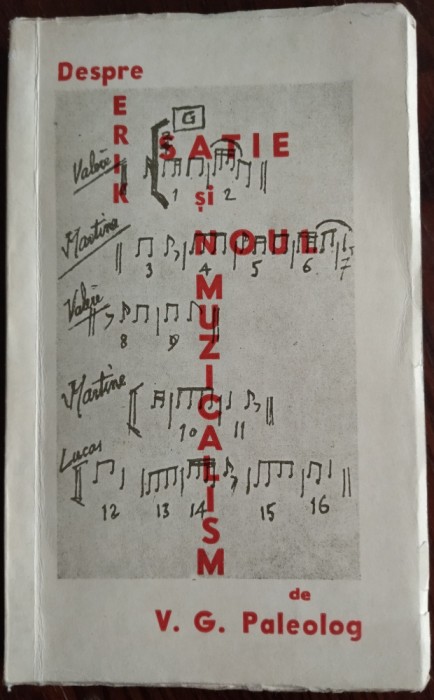 Despre
ERIK
SATIE
și
NOUL
MUZICALISM
de
V. G. Paleolog
G
Valérie
1 2
Martine
3 4 5 6 7
Valérie
8 9
Martine
10 11
Lucas
12 13 14 15 16